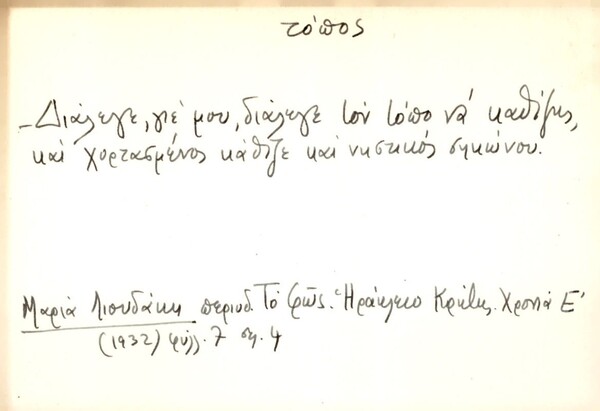 τόπος
- Διάλεγε, γιέ μου, διάλεγε τον τόπο νά καθίζης,
καί χορτασμένος κάθιζε καί νηστικός σηκώνου.
Μαρία Λιουδάκη περιοδ. Τό φῶς. Ἡράκλειο Κρήτης. Χρονιά Ε'
(1932) φύλλ. 7 σ. 4